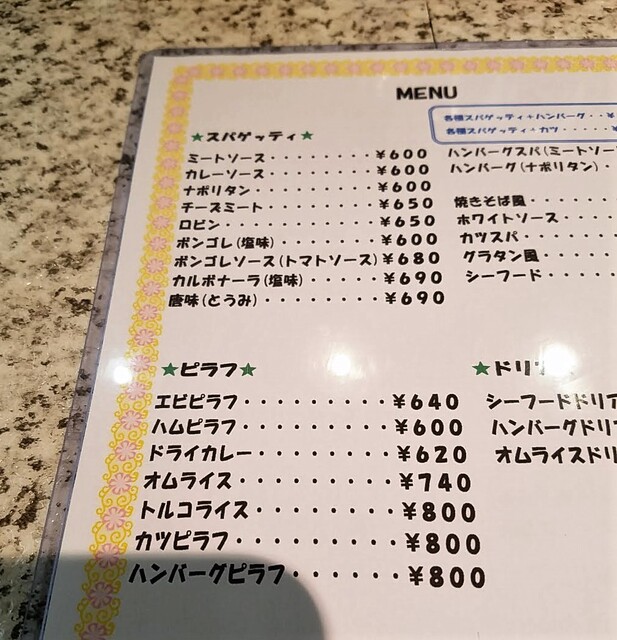 MENU
各種スパゲッティ+ハンバーグ・・¥
各種スパゲッティ・カツ・・・・・¥
★スパゲッティ★
ミートソース・・・・・・・・¥600
カレーソース・・・・・・・・¥600
ナポリタン・・・・・・・・・¥600
チーズミート・・・・・・・・¥650
ロビン・・・・・・・・・・・¥650
ボンゴレ(塩味)・・・・・・・¥600
ボンゴレソース(トマトソース)¥680
カルボナーラ(塩味)・・・・・¥690
唐味(とうみ)・・・・・・・・¥690
ハンバーグスパ(ミートソー
ハンバーグ(ナポリタン)・
焼きそば風・・・・
ホワイトソース・・・
カツスパ・・・・・
グラタン風・・・・
シーフード・・・・
★ピラフ★
エビピラフ・・・・・・・・・¥640
ハムピラフ・・・・・・・・・¥600
ドライカレー・・・・・・・・¥620
オムライス・・・・・・・・・¥740
トルコライス・・・・・・・・¥800
カツピラフ・・・・・・・・・¥800
ハンバーグピラフ・・・・・・¥800
★ドリ
シーフードドリア
ハンバーグドリ
オムライスドリ